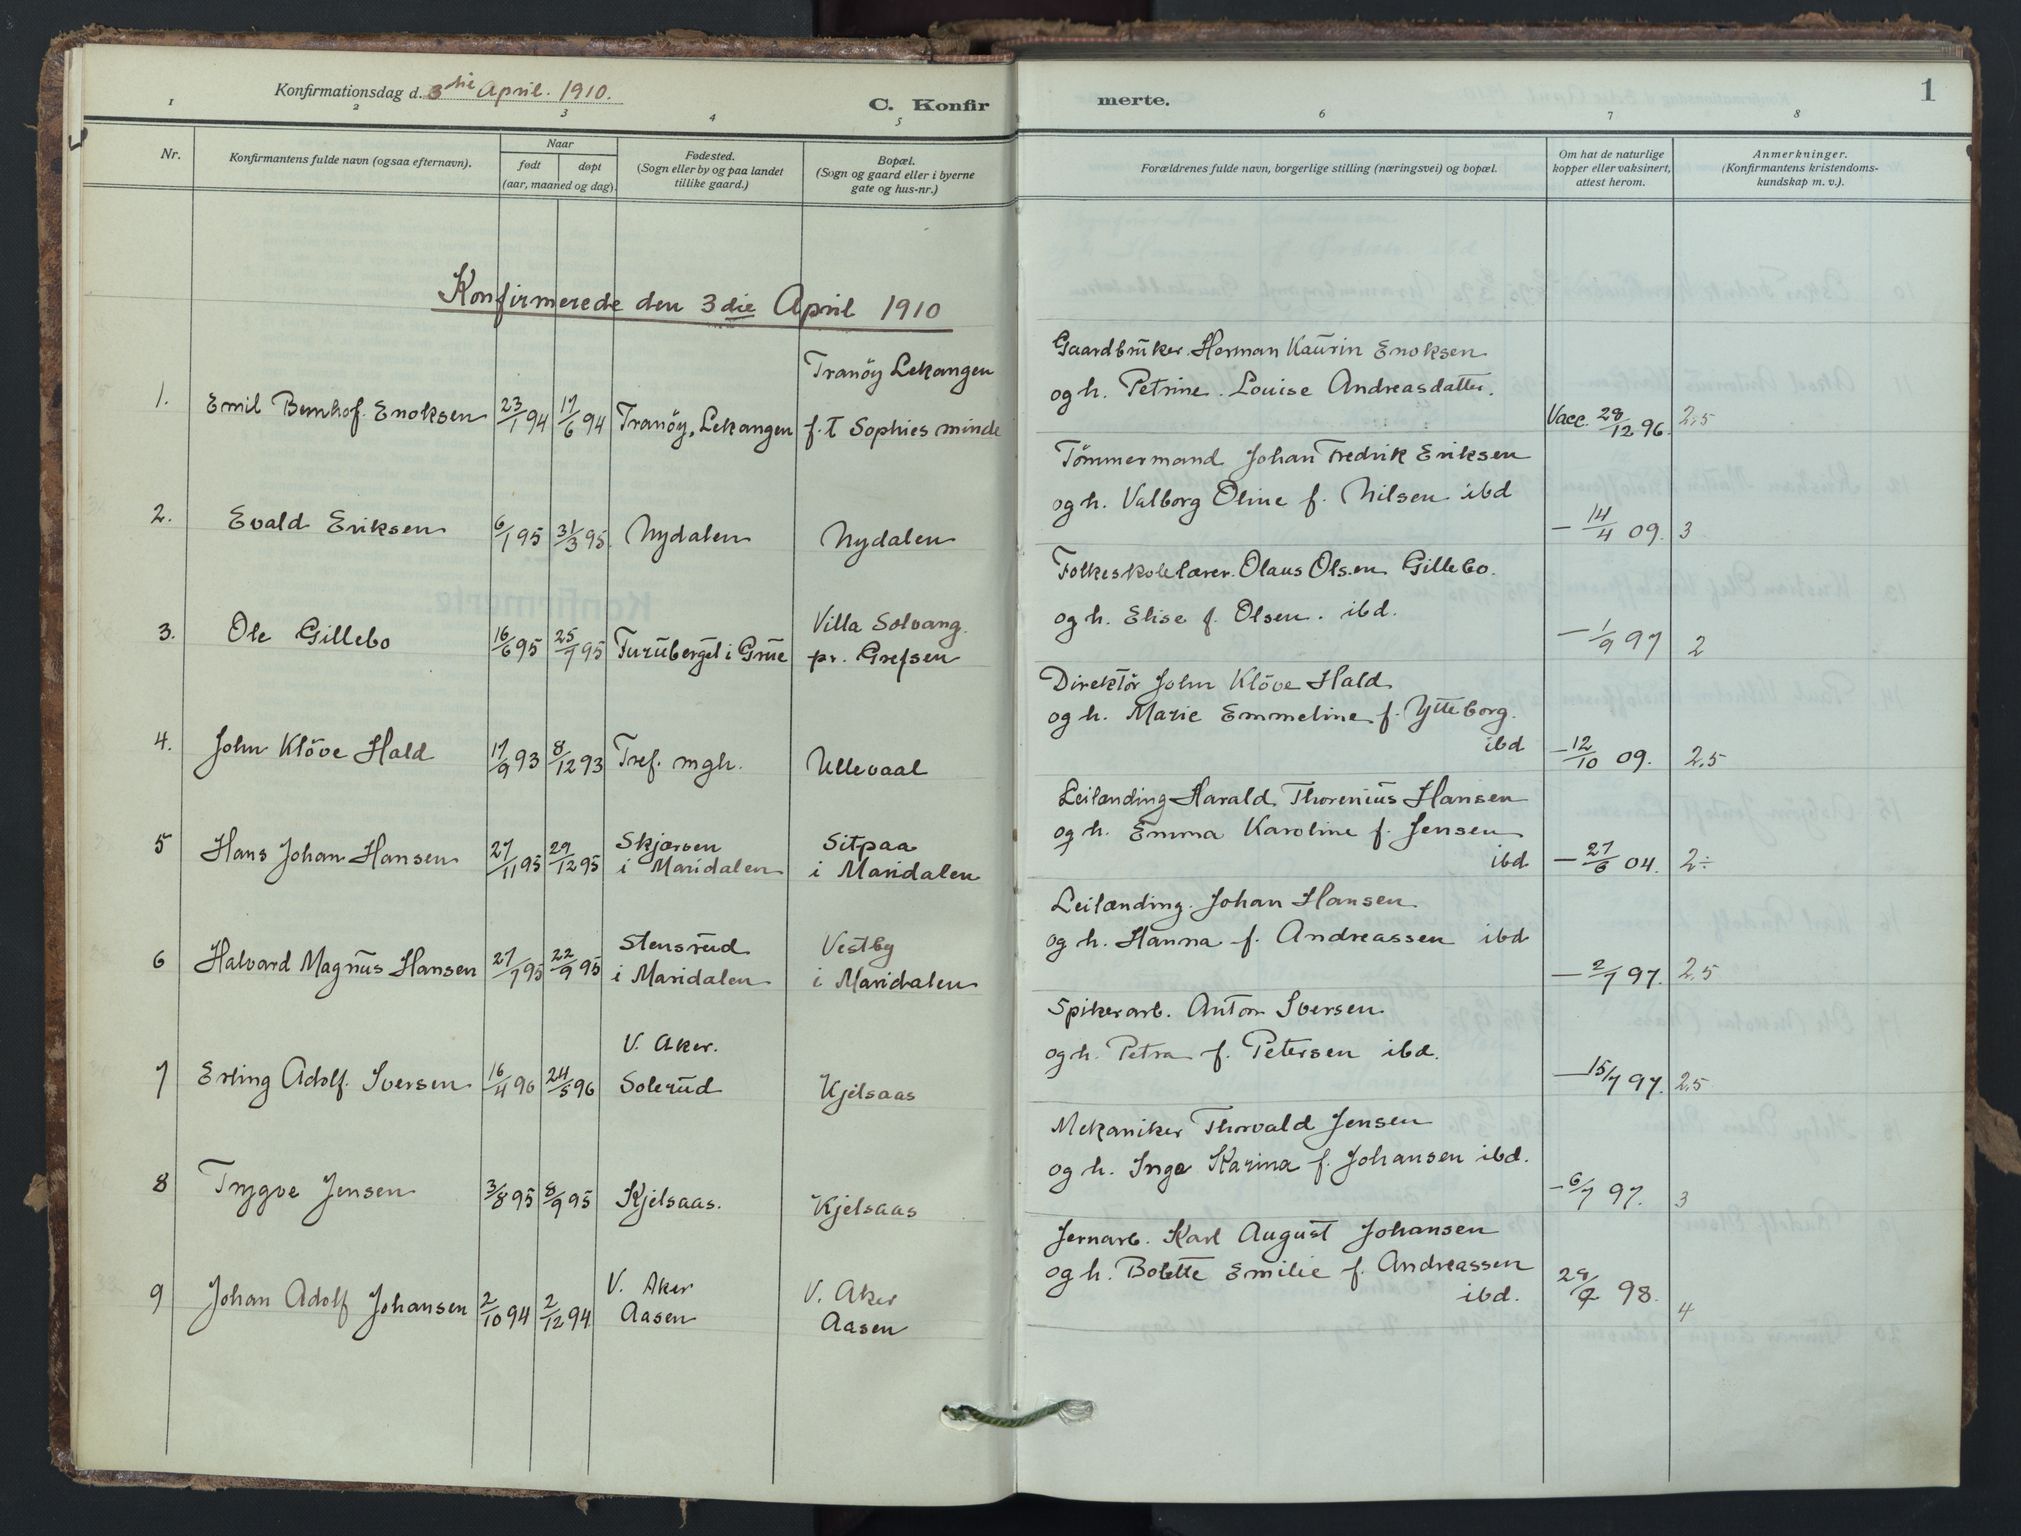 Konfirmationsdag d. 3die April. 1910.
C. Konfir
merte.
1
1 2 3 4 5 6 7 8
Nr.
Konfirmantens fulde navn (ogsaa efternavn).
Naar
født døpt
(aar, maaned og dag).
Fødested.
(Sogn eller by og paa landet
tillike gaard.)
Bopæl.
(Sogn og gaard eller i byerne
gate og hus-nr.)
Forældrenes fulde navn, borgerlige stilling (næringsvei) og bopæl.
Om hat de naturlige
kopper eller vaksinert,
attest herom.
Anmerkninger.
(Konfirmantens kristendoms-
kundskap m. v.).
Konfirmerede den 3die April 1910
Tranöy Lekangen
1. Emil Bernhof. Enoksen 23/1 94 17/6 94 Tranöy, Lekangen f. t Sophies minde
Gaardbruker. Herman Kaurin Enoksen
og h. Petrine. Louise Andreasdatter.
Vacc. 28/12 96. 2,5
2. Evald Eriksen 6/1 95 31/3 95. Nydalen Nydalen
Tömmermand Johan Fredrik Eriksen
og h. Valborg Oline f. Nilsen ibd
— 14/4 09. 3
Villa Solvang.
3. Ole Gillebo 16/6 95 25/7 95 Furuberget i Grue pr. Grefsen
Folkeskolelærer. Olaus Olsen Gillebo.
og h. Elise f. Olsen. ibd.
— 1/9 97 2
4. John Klöve Hald 17/9 93 8/12 93 Tref. mgh. Ullevaal
Direktör John Klöve Hald
og h. Marie Emmeline f. Ytteborg.
ibd — 12/10 09. 2.5
5 Hans Johan Hansen 27/11 95 29/12 95 Skjærsen
i Maridalen
Sitpaa
i Maridalen
Leilænding Harald Thorenius Hansen
og h. Emma Karoline f. Jensen
ibd — 27/6 04. 2÷
6 Halvard Magnus Hansen 27/7 95 22/9 95 Stensrud
i Maridalen
Vestby
i Maridalen
Leilænding. Johan Hansen
og h. Hanna f. Andreassen ibd
— 2/7 97. 2.5
V. Aker.
7 Erling Adolf. Iversen 16/4 96 24/5 96 Solerud Kjelsaas
Spikerarb. Anton Iversen
og h. Petra f. Petersen ibd.
— 15/7 97. 2.5
8 Trygve Jensen 3/8 95 8/9 95 Kjelsaas. Kjelsaas
Mekaniker Thorvald Jensen
og h. Inga Karina f. Johansen ibd.
— 6/7 97. 3
9 Johan Adolf Johansen 2/10 94 2/12 94 V. Aker
Aasen
V. Aker
Aasen
Jernarb. Karl August Johansen
og h. Bolette Emilie f. Andreassen
ibd.
98. 4